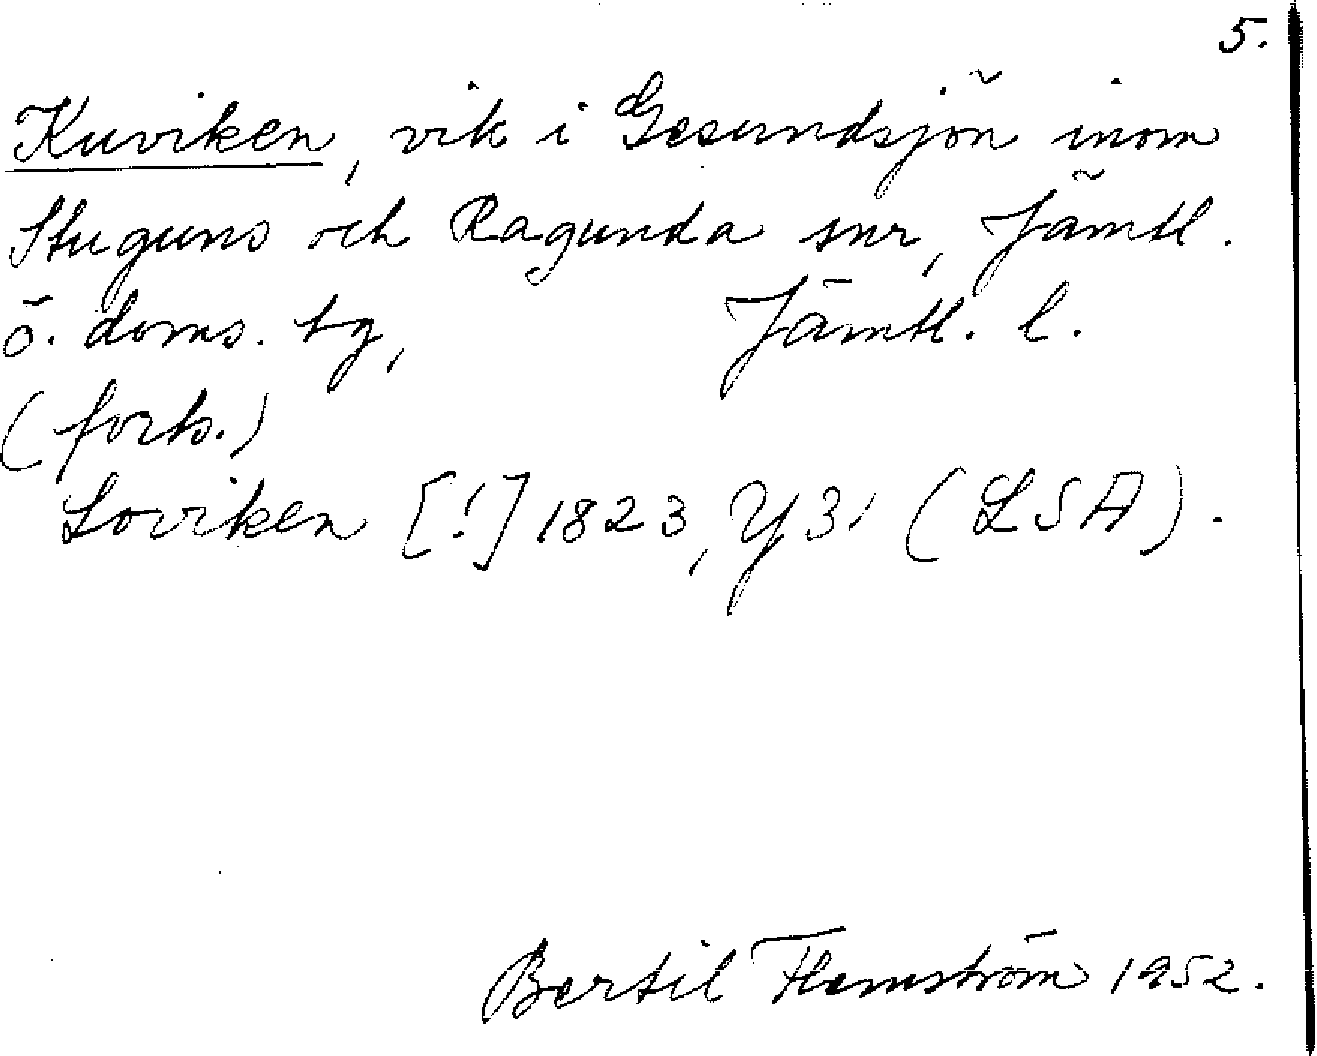 5.
Kuviken, vik i Gesundsjön inom
Stuguns och Ragunda snr, Jämtl.
ö. doms. tg, Jämtl. l.
(forts.)
Loviken [!] 1823, Y31 (LSA).
Bertil Flemström 1952.